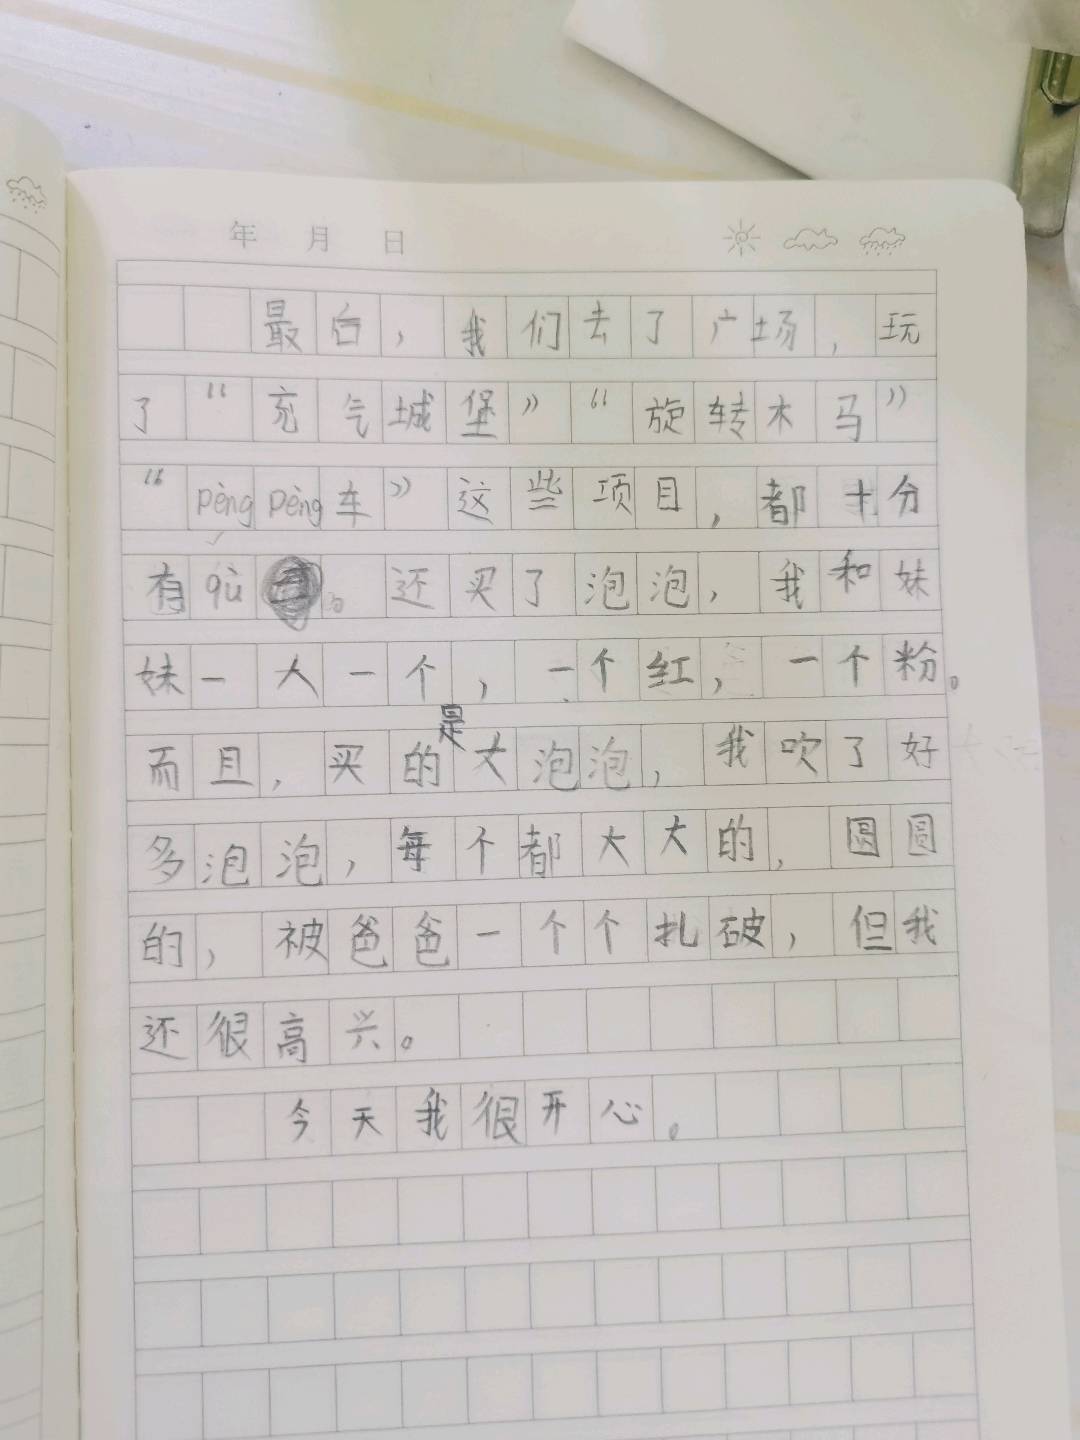 年 月 日
最后，我们去了广场，玩
了“充气城堡”“旋转木马”
“pèng pèng车”这些项目，都十分
有qù。还买了泡泡，我和妹
妹一人一个，一个红，一个粉。
而且，买的是大泡泡，我吹了好
多泡泡，每个都大大的，圆圆
的，被爸爸一个个扎破，但我
还很高兴。
今天我很开心。